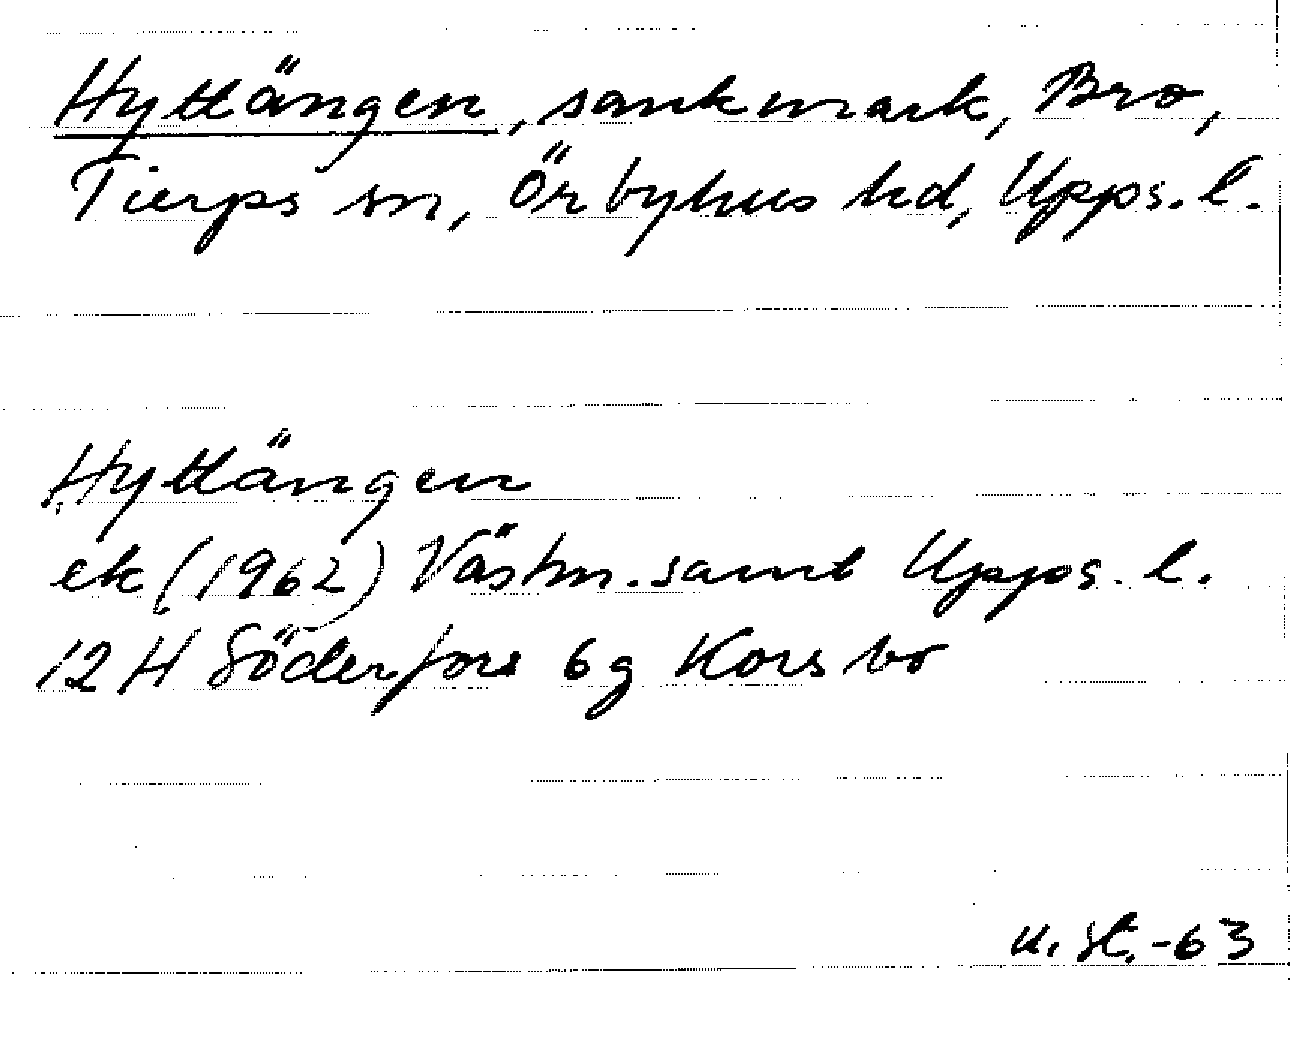 Hyttängen, sankmark, Bro,
Tierps sn, Örbyhus hd, Upps. l.
Hyttängen
ek (1962) Västm. samt Upps. l.
12 H Söderfors 6g Korsbo
u. st. -63